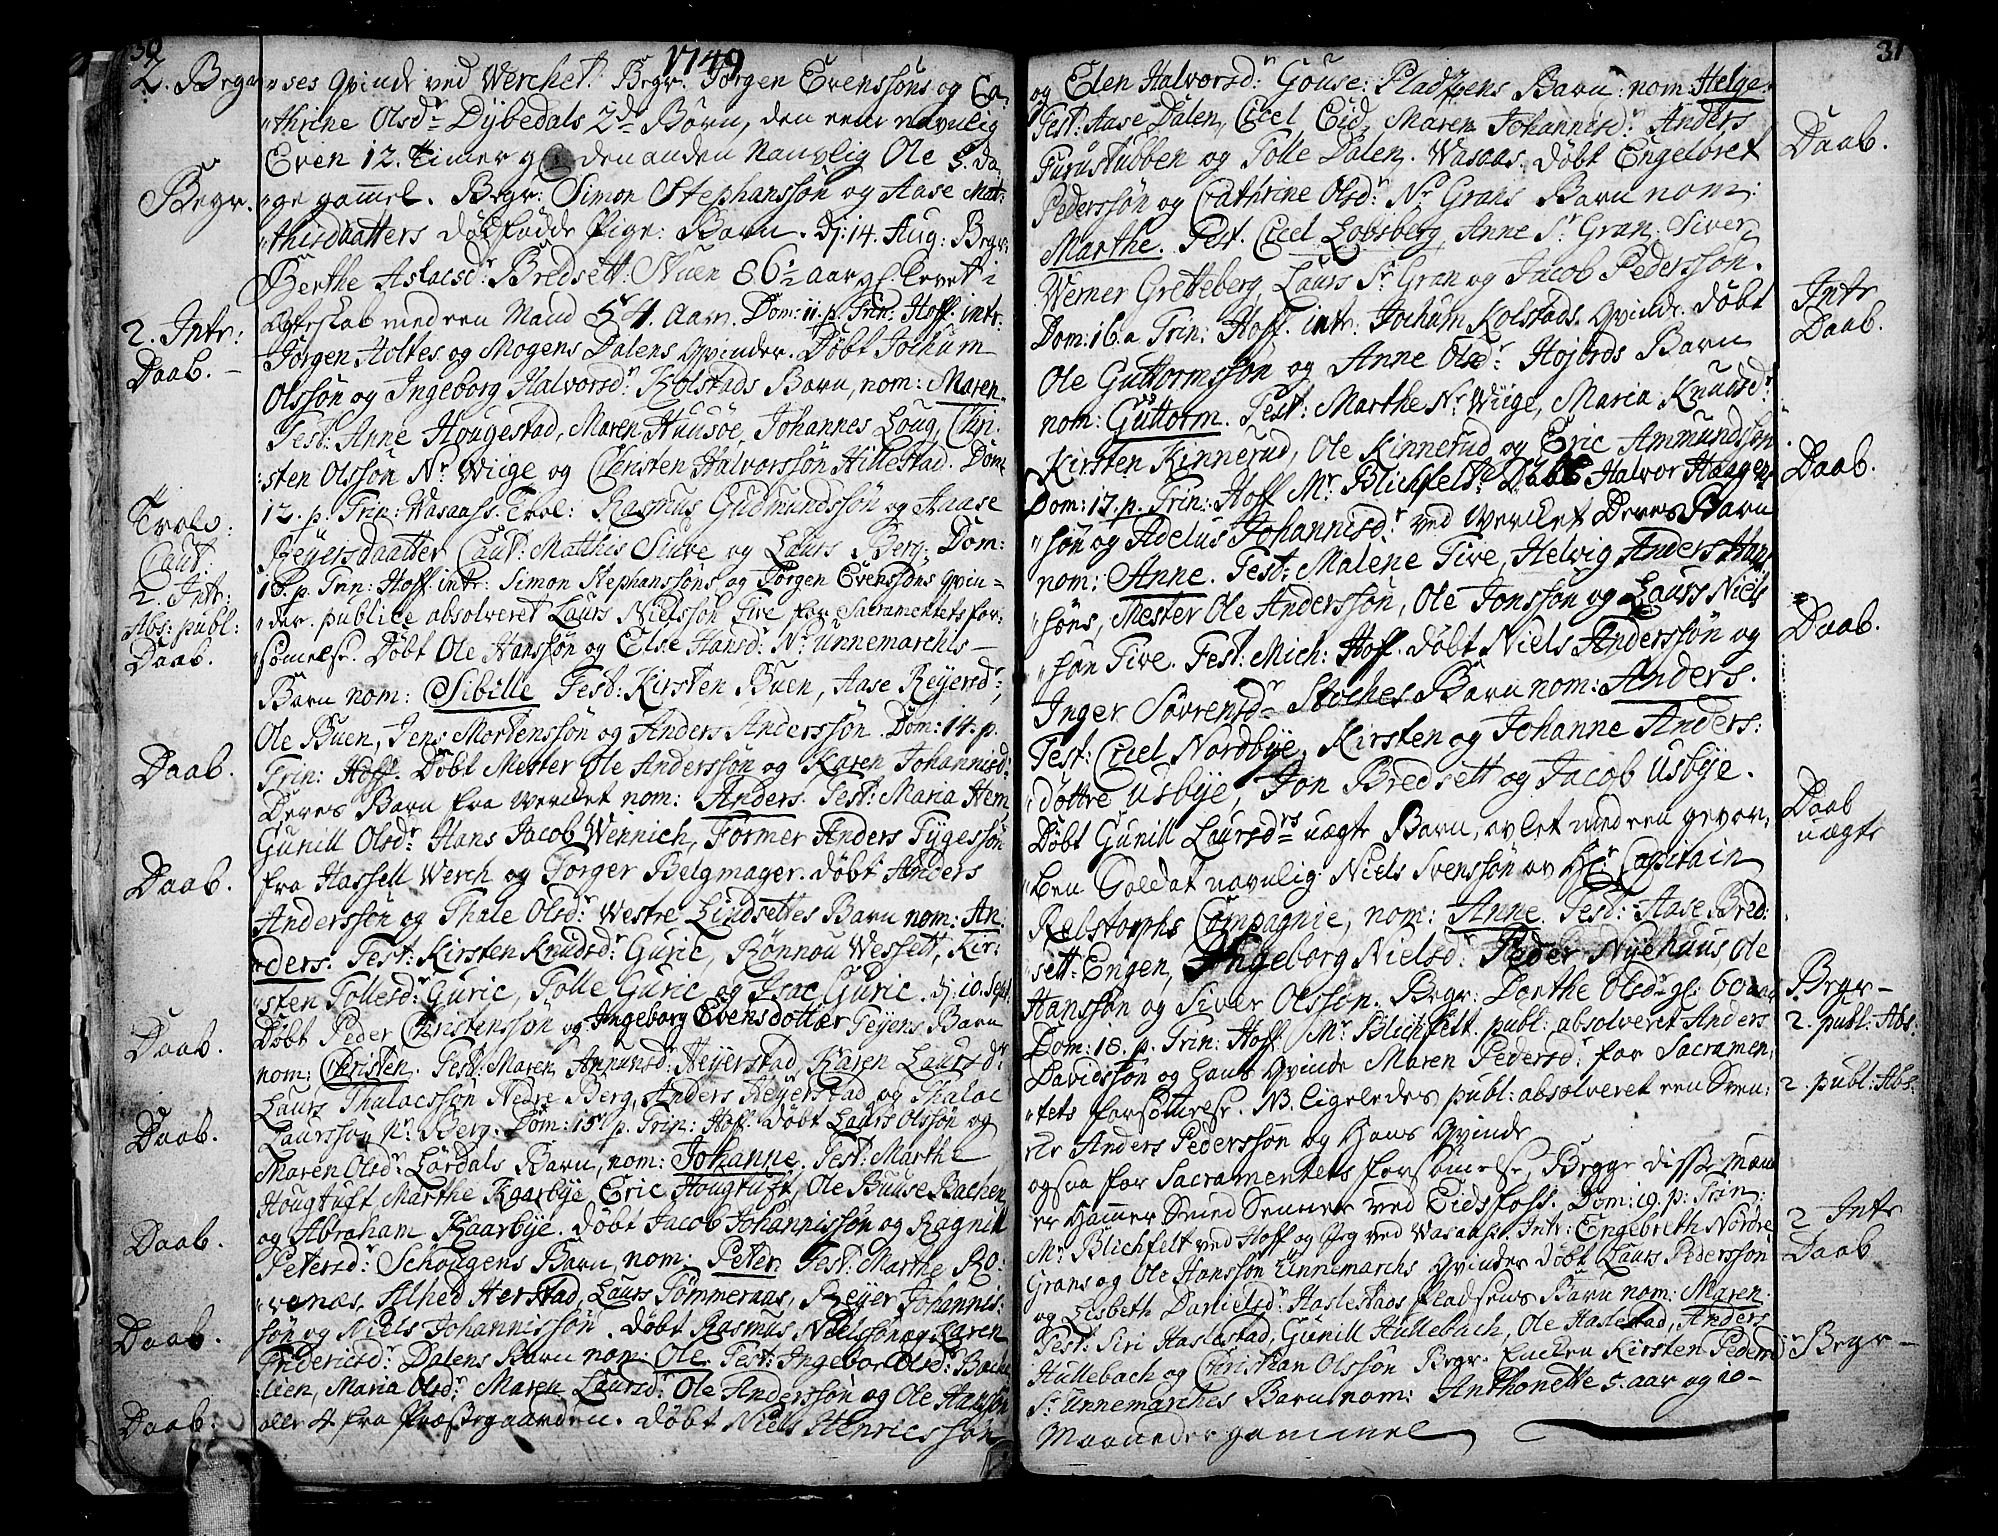 30
1749
2. Begr.
ses Qvinde ved Werchet. Begr. Jørgen Evenssøns og Ca-
thrine Olsdr Dybedals 2de Børn, den eene navnlig
Even 12. Timer g den anden Navnlig Ole 5. Da-
Begr.
ge gammel. Begr: Simon Stephanssøn og Aase Mat-
thisdaatters dødfødde Pige-Barn. Dj: 14. Aug: Begr:
Berthe Aslacsdr Bredsett-Skuen 86½ aar gl. levet i
Ægteskab med een Mand 54. Aar. Dom: 11. p. Trin: Hoff. intr:
2. Intr:
Jørgen Holtes og Mogens Dalens Qvinder. Døbt Jochum
Daab.
Olssøn og Ingeborg Halvorsdr Kolstads Barn, nom: Maren.
Test: Anne Hougestad, Maren Huusøe, Johannes Loug, Chri-
sten Olssøn Nr Wiige og Christen Halvorssøn Hillestad. Dom:
12. p. Trin: Wasaas. Trol: Rasmus Gudmundssøn og Aase
Trolo:
Reyersdaatter Caut: Matthis Siuve og Laurs Berg. Dom:
Caut:
13. p. Trin: Hoff. intr: Simon Stephanssøns og Jørgen Evenssøns Qvin-
2. Intr:
der. publice absolveret Laurs Nielssøn Five for Sacramentets for-
Abs: publ:
sømelse. Døbt Ole Hanssøn og Else Hansdr Nr Unnemarchs
Daab.
Barn nom: Sibille Test: Kirsten Buen, Aase Reyersdr,
Ole Buen, Jens Mortenssøn og Anders Anderssøn. Dom: 14. p.
Daab.
Trin: Hoff. Døbt Mester Ole Anderssøn og Karen Johannisdr
Deres Barn fra Verchet nom: Anders. Test: Maria Hem
Gunill Olsdr Hans Jacob Wennich, Former Anders Tygessøn
Daab.
fra Hassell Werch og Torger Belgmager. Døbt Anders
Anderssøn og Thale Olsdr Westre Lindsettes Barn nom: An-
ders. Test: Kirsten Knudsdr Guric, Rønnou Wessett, Kir-
sten Tollesdr Guric, Tolle Guric og Isac Guric. Dj: 10. Sept
Daab.
Døbt Peder Christenssøn og Ingeborg Evensdotter Teyens Barn
nom: Christen. Test: Maren Ammunsdr Heyerstad, Karen Laursdr
Laurs Thalacssøn Nedre Berg, Anders Heyerstad og Thalac
Daab.
Laurssøn Nr Berg. Dom: 15. p. Trin: Hoff. Døbt Laurs Olssøn og
Maren Olsdr Lørdals Barn, nom: Johanne. Test: Marthe
Hougtuft Marthe Kaarbye, Eric Hougtuft, Ole Buuse Bachen
Daab.
og Abraham Kaarbye. Døbt Jacob Johannissøn og Ragnil
Petersdr Schougens Barn, nom: Peter. Test: Marthe Ro-
venæs, Alhed Herstad, Laurs Tømmeraas, Reyer Johannis-
Daab.
søn og Niels Johannissøn. Døbt Rasmus Nielssøn og Karen
Fridericsdr Dalens Barn nom: Ole Test: Ingebor Olsdr Bache
lien, Maria Olsdr Maren Laursdr Ole Anderssøn og Ole Hanssøn
Daab:
alle 4 fra Præstegaarden. Døbt Niels Henricssøn
31
og Elen Halvorsdr Gouse-Pladszens Barn: nom: Helge.
Daab.
Test: Aase Dalen, Cicel Eid, Maren Johannisdr Anders
Furustubben og Tolle Dalen. Wasaas. Døbt Engelbret
Pederssøn og Cathrine Olsdr Nr Grans Barn nom:
Marthe. Test. Cicel Lobsberg, Anne Sr Gran, Siver
Werner Gretteberg Laurs Sr Gran og Jacob Pederssøn.
Intr
Dom: 16. a Trin: Hoff. intr. Jochum Kolstads Qvinde. Døbt
Daab.
Ole Guttormssøn og Anne Olsdr Hojords Barn
nom: Guttorm. Test: Marthe Nr Wiige, Maria Knudsdr
Kirsten Kinnerud, Ole Kinnerud og Eric Ammundssøn
Daab.
Dom: 17. p. Trin: Hoff Mr Blichfelt. Døbt Halvor Haagen-
søn og Adelus Johannisdr ved Verchet Deres Barn
nom: Anne. Test: Malene Five, Helvig Anders Han-
søns, Mester Ole Anderssøn, Ole Jonssøn og Laurs Niels
Daab.
søn Five. Fest: Mich: Hoff. Døbt Niels Anderssøn og
Inger Sørrensdr Stoches Barn nom: Anders.
Test: Cicel Nordbye, Kirsten og Johanne Anders:
døttre Usbye, Jon Bredsett og Jacob Usbye.
Daab
uægte
Døbt Gunill Laursdrs uægte Barn, avlet med een gevor-
ben Soldat navnlig Niels Svenssøn av Hr Capitain
Relstorphs Compagnie, nom: Anne. Test: Aase Bred-
sett-Engen, Ingeborg Nielsdr Peder Nyehuus, Ole
Begr
Hanssøn og Siver Olssøn. Begr: Dorthe Olsdr gl: 60 aar
2. publ: Abs:
Dom: 18. p. Trin: Hoff Mr Blichfelt. publ: absolveret Anders
Davidssøn og hans Qvinde Maren Pedersdr for Sacramen-
2. publ: Abs:
tets forsømelse. NB. ligeledes publ: absolveret een Sven-
Anders Pederssøn og hans Qvinde
ogsaa for Sacramentets forsømelse, Begge disse Mænd
er Hammer Smed Svenner ved Eidsfoss. Dom: 19. p: Trin:
2 Intr
Mr Blichfelt ved Hoff og Jeg ved Wasaas. Intr: Engebreth Nordre
Daab
Grans og Ole Hanssøn Unnemarchs Qvinder Døbt Laurs Pederssøn
og Lisbeth Danielsdr Haslestads Pladsens Barn nom: Maren.
Test: Siri Haslestad, Gunill Hullebach, Ole Haslestad, Anders
Begr
Hullebach og Christian Olssøn Begr. Encken Kirsten Pedersdr
Sr Unnemarches Barn nom: Anthonette 5. aar og 10
Maaneder gammel